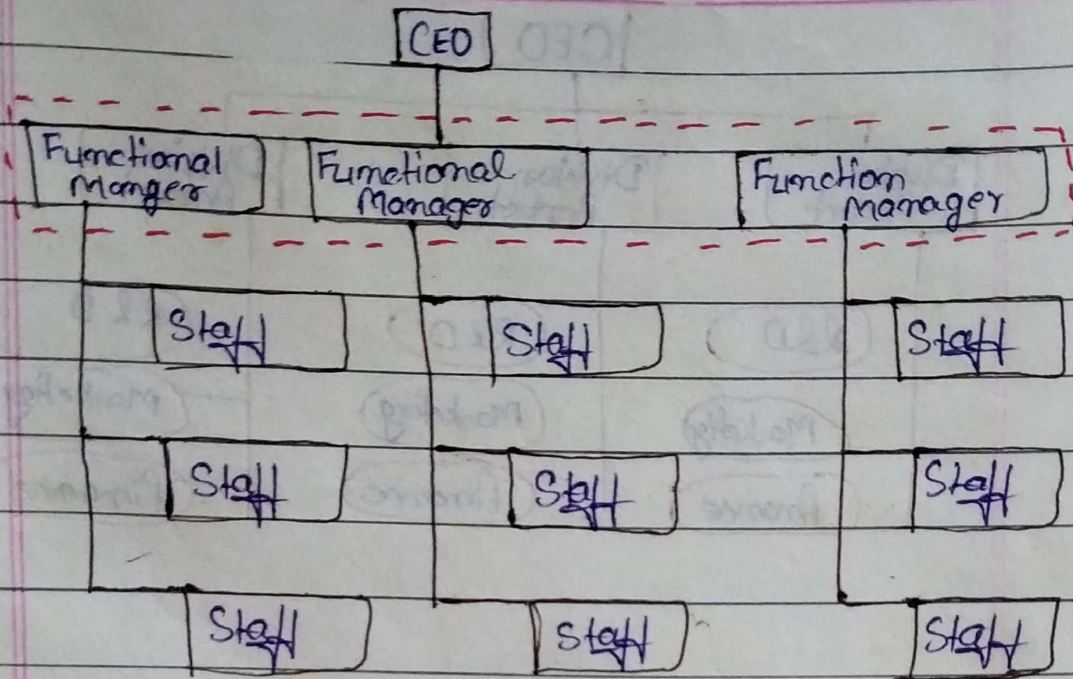 CEO
Functional
Manger
Functional
Manager
Function
Manager
Staff
Staff
Staff
Staff
Staff
Staff
Staff
Staff
Staff